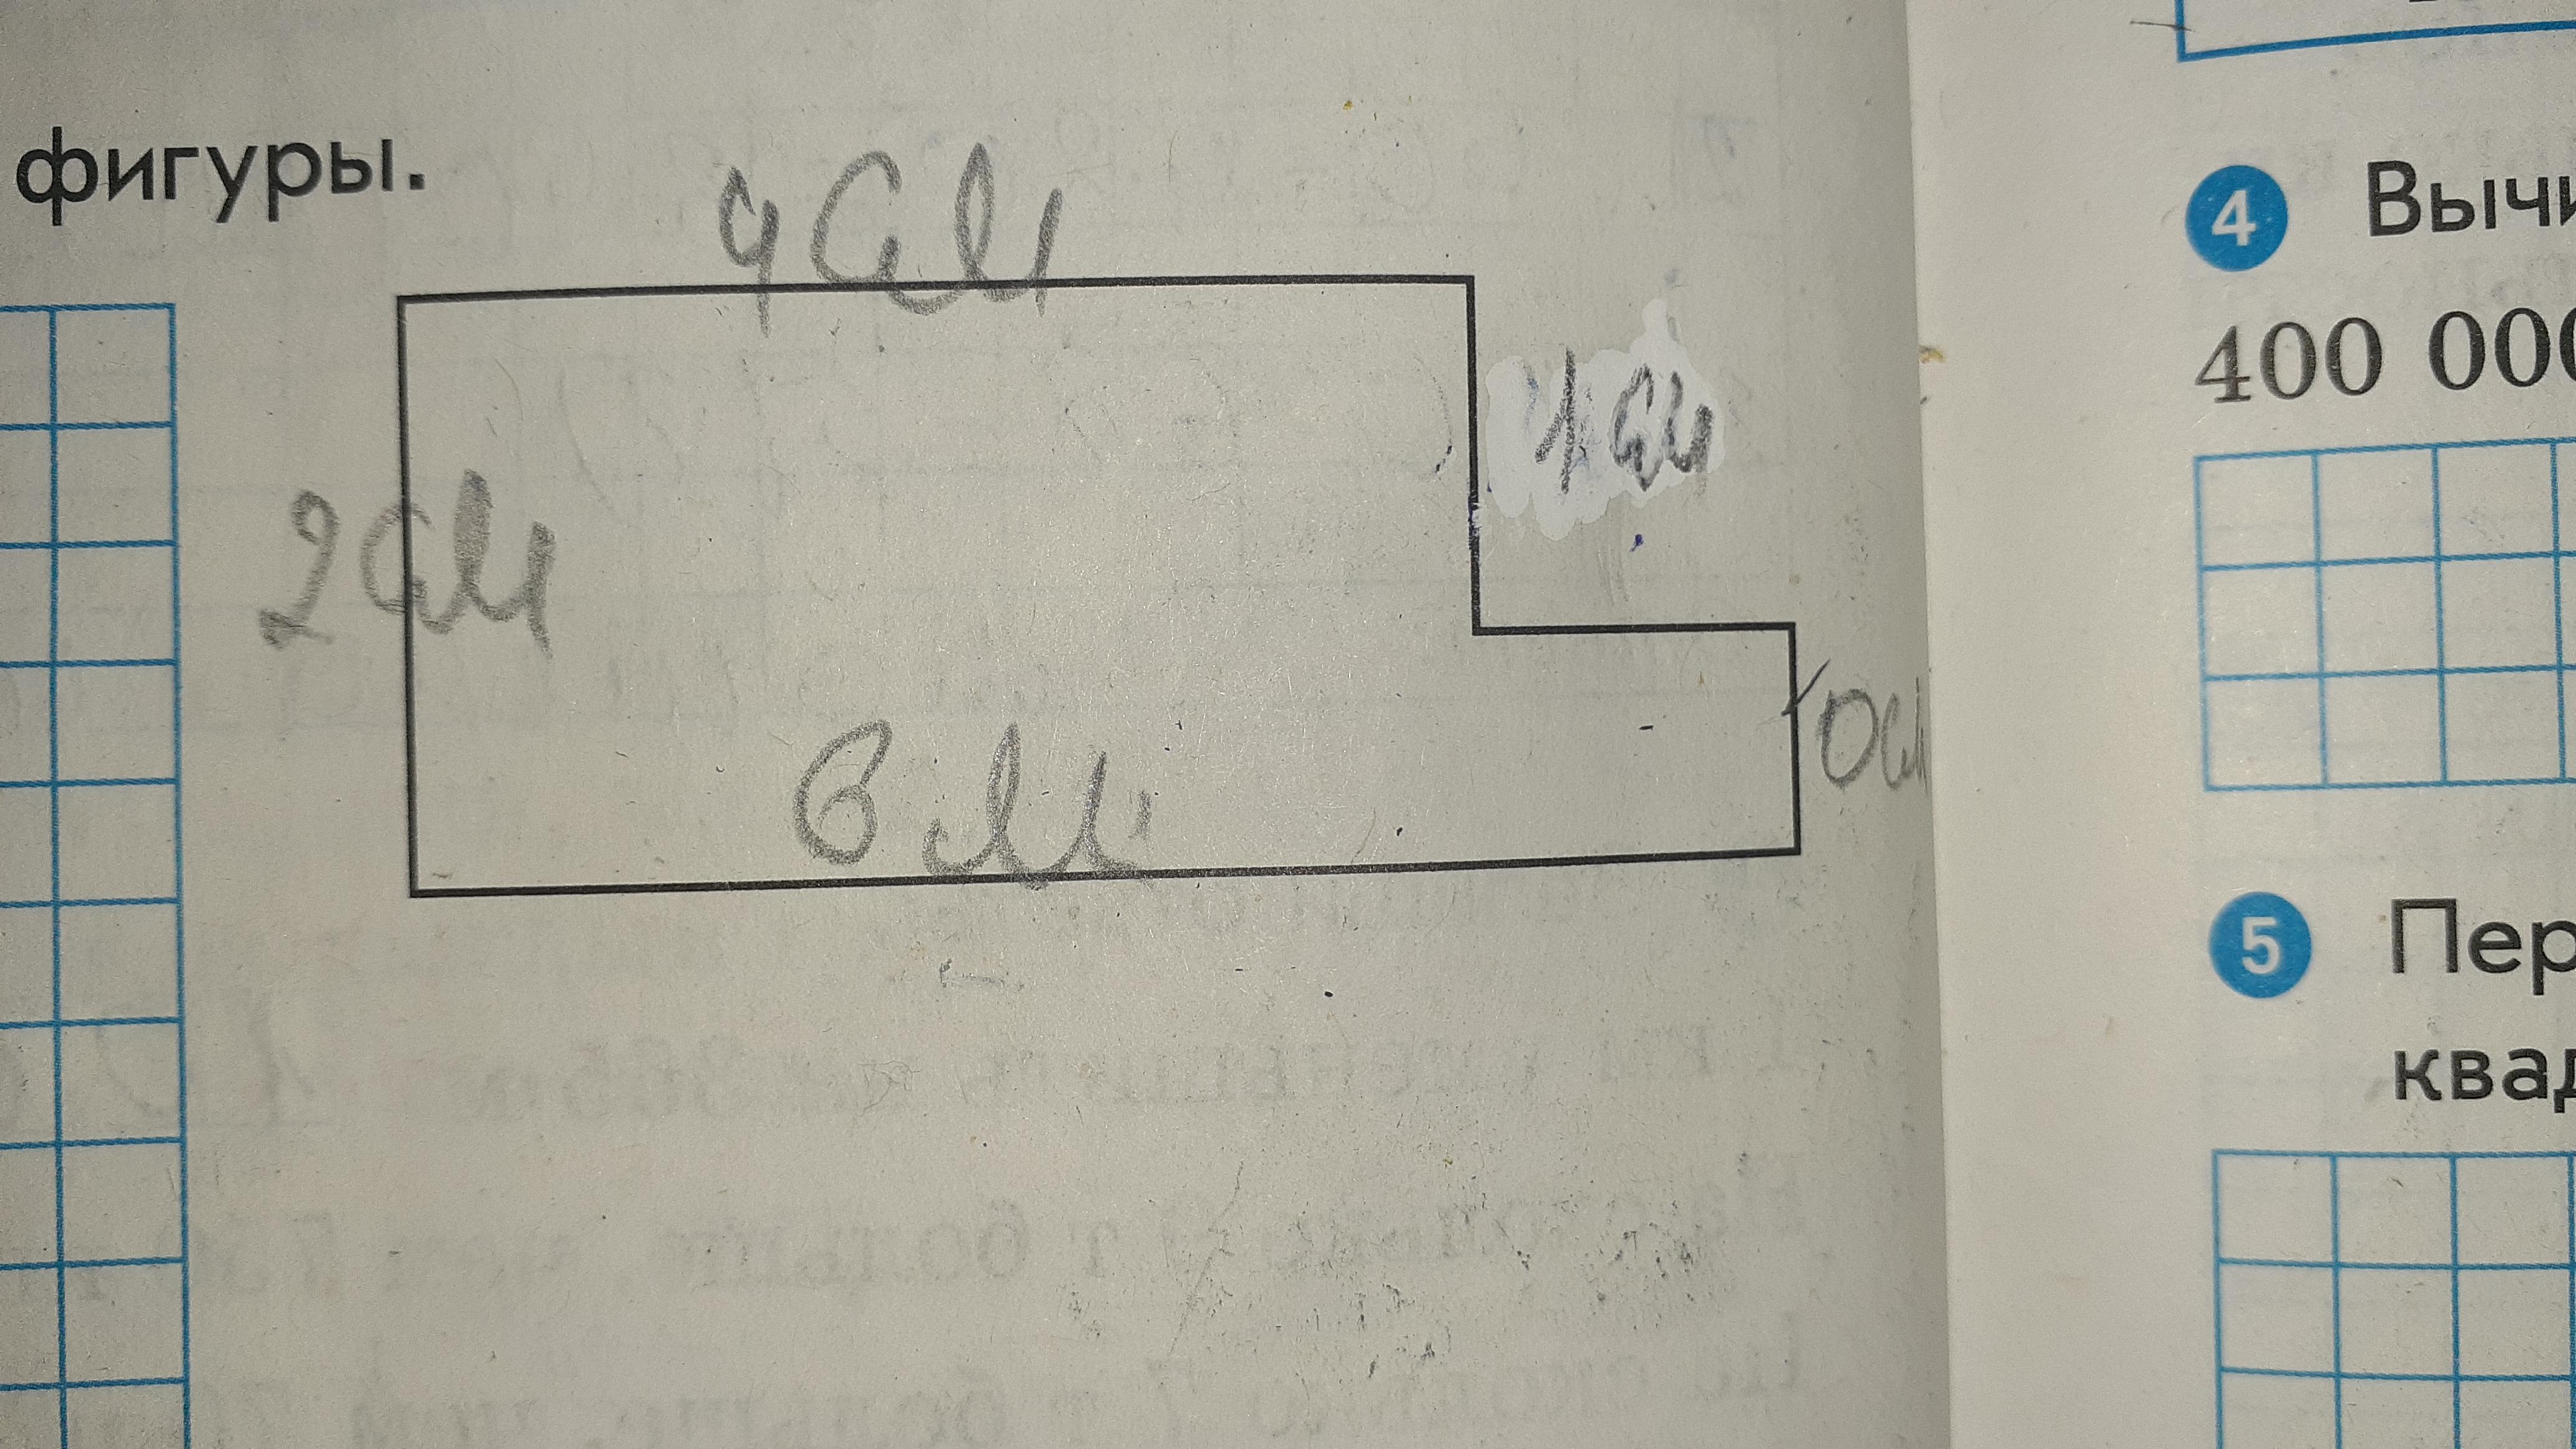 фигуры.
4 см
1 см
2 см
6 см
0 см
4 Вычи
400 000
5 Пер
квад